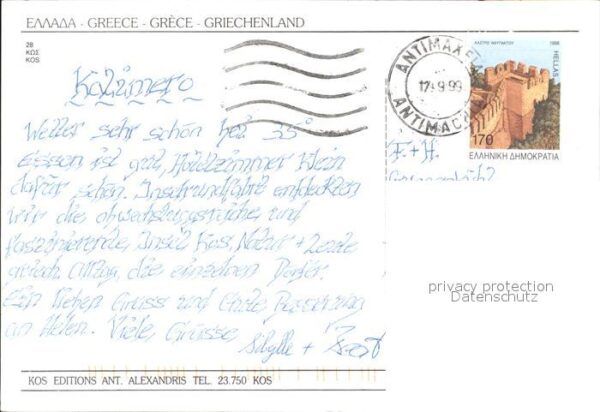 ΕΛΛΑΔΑ - GREECE - GRÈCE - GRIECHENLAND
28
ΚΩΣ
KOS
ΚΑΣΤΡΟ ΝΑΥΠΑΚΤΟΥ 1998
HELLAS
170
ΕΛΛΗΝΙΚΗ ΔΗΜΟΚΡΑΤΙΑ
ΑΝΤΙΜΑΧΕΙΑ
17-9-99
ANTIMACH
Kalimero
Wetter sehr schön heiß 35°
Essen ist gut, Hotelzimmer klein
dafür schön. Inselrundfahrt entdecken
wir die abwechslungsreiche und
faszinierende Insel Kos, Natur + Leute
griech. Alltag, die einzelnen Dörfer.
Ein lieben Gruss und Gute Besserung
an Helen. Viele Grüsse
Sibylle +
F. + H.
privacy protection
Datenschutz
KOS EDITIONS ANT. ALEXANDRIS TEL. 23.750 KOS